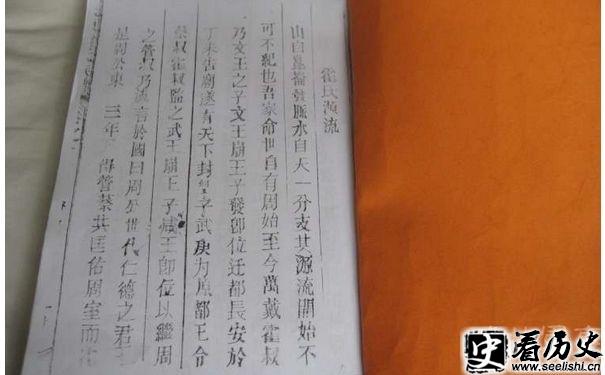 霍氏演流
山自崑崙發脈水自天一分支其源流開始不
可不紀也吾家命世自有周始至今萬戴霍叔
乃文王之子文王崩王子發即位迁都長安於
丁未告廟遂有天下封皇子武庚为殷都王令
蔡叔霍叔監之武王崩王子成王即位以繼周
之管叔乃流言於國曰周公世代仁德之君
是周公東 三年 得管蔡共匡佑周室而
看历史
www.seelishi.cn